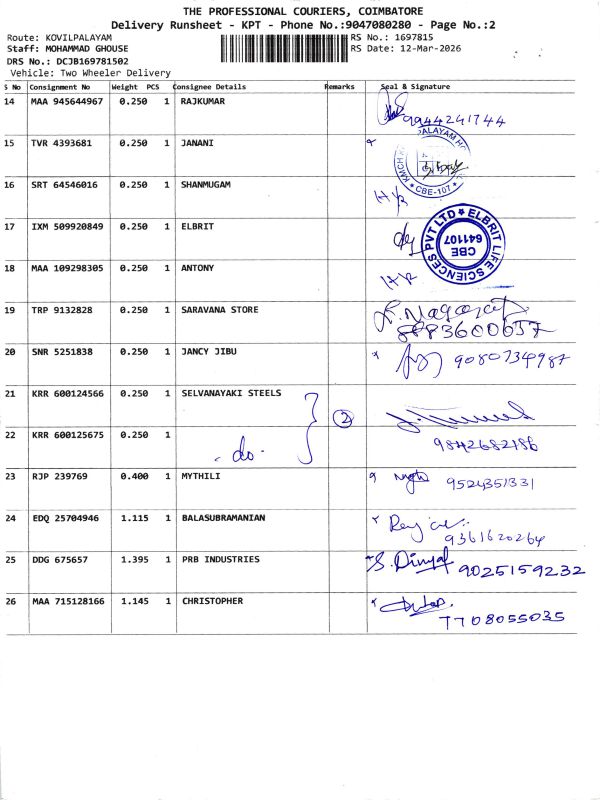 THE PROFESSIONAL COURIERS, COIMBATORE
Delivery Runsheet - KPT - Phone No.:9047080280 - Page No.:2
Route: KOVILPALAYAM RS No.: 1697815
Staff: MOHAMMAD GHOUSE RS Date: 12-Mar-2026
DRS No.: DCJB169781502
Vehicle: Two Wheeler Delivery
S No Consignment No Weight PCS Consignee Details Remarks Seal & Signature
14 MAA 945644967 0.250 1 RAJKUMAR
9944241744
15 TVR 4393681 0.250 1 JANANI
CBE-107
16 SRT 64546016 0.250 1 SHANMUGAM
17 IXM 509920849 0.250 1 ELBRIT
ELBRIT LIFE SCIENCES PVT LTD
CBE
641107
18 MAA 109298305 0.250 1 ANTONY
19 TRP 9132828 0.250 1 SARAVANA STORE
8883600657
20 SNR 5251838 0.250 1 JANCY JIBU
9080734987
21 KRR 600124566 0.250 1 SELVANAYAKI STEELS
2
22 KRR 600125675 0.250 1
do
9842682186
23 RJP 239769 0.400 1 MYTHILI
9524351331
24 EDQ 25704946 1.115 1 BALASUBRAMANIAN
9361620264
25 DDG 675657 1.395 1 PRB INDUSTRIES
9025159232
26 MAA 715128166 1.145 1 CHRISTOPHER
7708055035